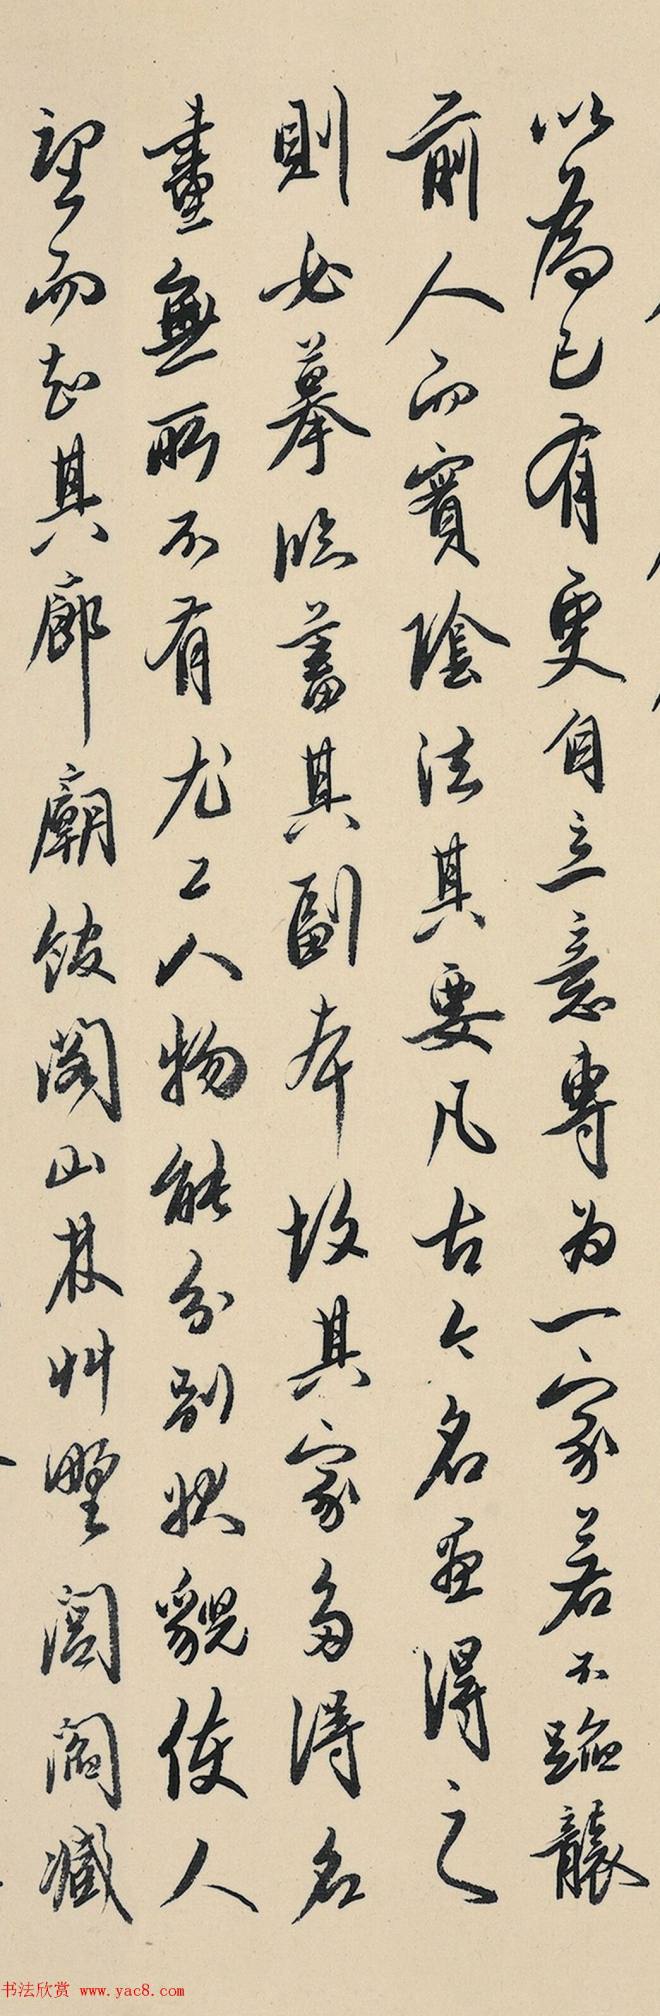 以為己有更自立意專為一家若不蹈襲
前人而實陰法其要凡古今名畫得之
則必摹臨蓄其副本故其家多得名
畫無所不有尤工人物能分別狀貌使人
望而知其廊廟館閣山林草野閭閻臧
书法欣赏 www.yac8.com